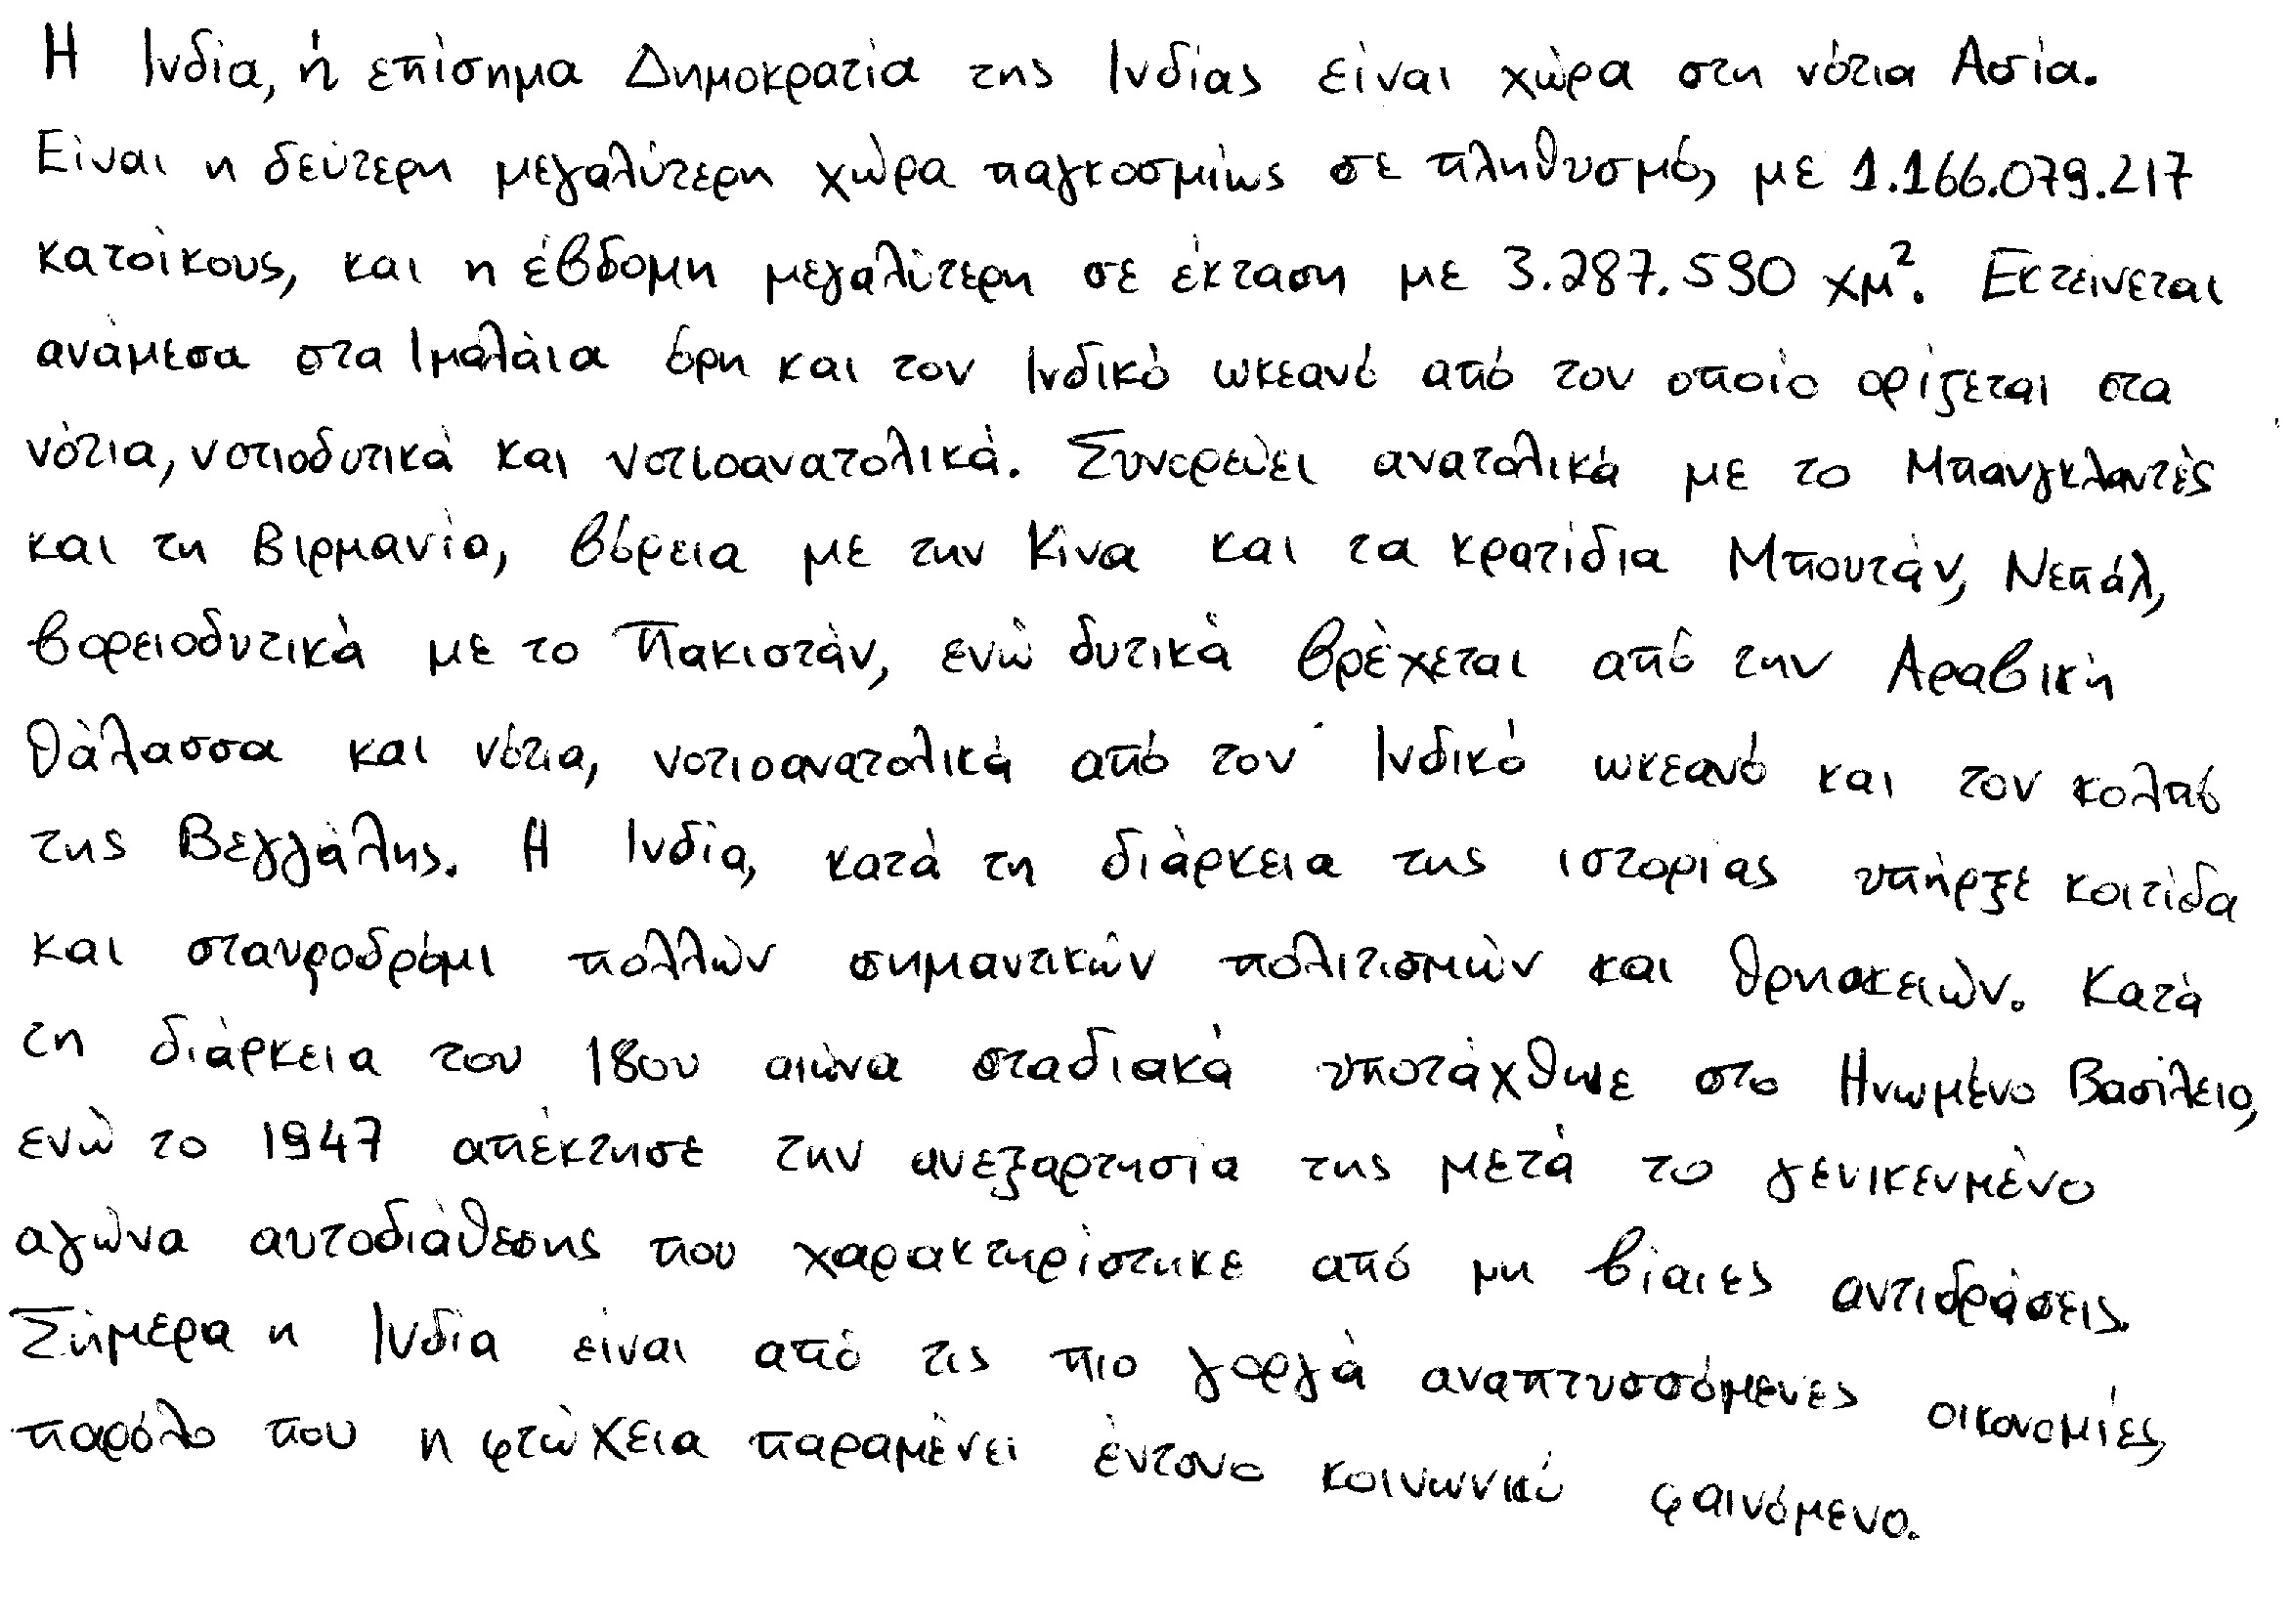 Η Ινδία, ή επίσημα Δημοκρατία της Ινδίας είναι χώρα στη νότια Ασία.
Είναι η δεύτερη μεγαλύτερη χώρα παγκοσμίως σε πληθυσμό, με 1.166.079.217
κατοίκους, και η έβδομη μεγαλύτερη σε έκταση με 3.287.590 χμ². Εκτείνεται
ανάμεσα στα Ιμαλάια όρη και τον Ινδικό ωκεανό από τον οποίο ορίζεται στα
νότια, νοτιοδυτικά και νοτιοανατολικά. Συνορεύει ανατολικά με το Μπανγκλαντές
και τη Βιρμανία, βόρεια με την Κίνα και τα κρατίδια Μπουτάν, Νεπάλ,
βορειοδυτικά με το Πακιστάν, ενώ δυτικά βρέχεται από την Αραβική
θάλασσα και νότια, νοτιοανατολικά από τον Ινδικό ωκεανό και τον κολπό
της Βεγγάλης. Η Ινδία, κατά τη διάρκεια της ιστορίας υπήρξε κοιτίδα
και σταυροδρόμι πολλών σημαντικών πολιτισμών και θρησκειών. Κατά
τη διάρκεια του 18ου αιώνα σταδιακά υποτάχθηκε στο Ηνωμένο Βασίλειο,
ενώ το 1947 απέκτησε την ανεξαρτησία της μετά το γενικευμένο
αγώνα αυτοδιάθεσης που χαρακτηρίστηκε από μη βίαιες αντιδράσεις.
Σήμερα η Ινδία είναι από τις πιο γοργά αναπτυσσόμενες οικονομίες,
παρόλο που η φτώχεια παραμένει έντονο κοινωνικό φαινόμενο.